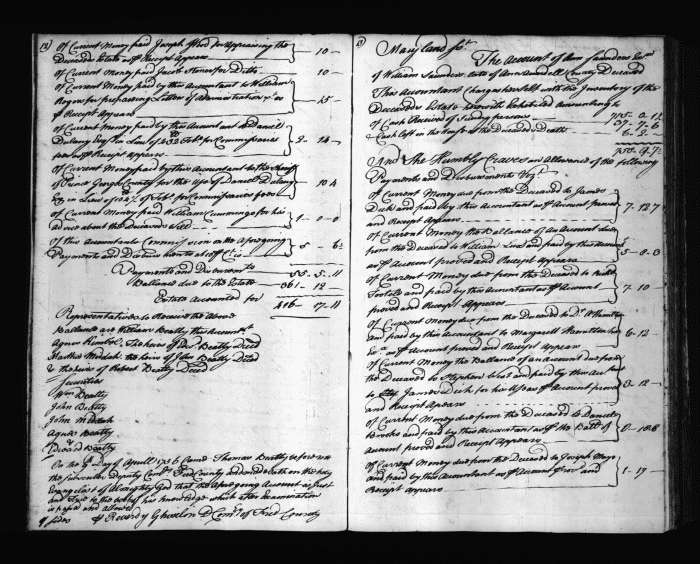 12)
of Current Money paid Joseph Wood for Appraising the
Deceaseds Estate as ⅌ Receipt Appears } " 10 "
of Current Money paid Jacob Stoner for Ditto " 10 "
of Current Money paid by this Accountant to William
Rogers for preparing Letters of Administration ⅌ as } " 15 "
⅌ Receipt Appears
of Current Money paid by this Accountant to Daniel
Dulany Esqr in Lieu of 432 of Tobo for Commissaries } 2 " 14 "
fees as ⅌ receipt appears
of Current Money paid by this Accountant to the Sheriff
of Prince Georges County for the Use of Daniel Dulany } " 10 4
Esqr in Lieu of of Tobo for Commissaries fees
of Current Money paid William Cummings for his
Advice about the Deceaseds Will } 1 " 0 " 0
of this Accountants Commission on the Aforegoing
Payments and Disbursments at ⅌ Ct is } 5 " 6
Payments and Disbursmts 55 " 5 " 11
Ballance due to the Estate 361 " 12 "
Estate Accounted for 416 " 17 " 11
Representatives to Receive the Above
Ballance are William Beatty this Accountt
Agnes the heires of Beatty Deced
Martha Middah the heirs of John Beatty Deced
& the heirs of Robert Beatty Deced
Securities
Wm Beatty
John Beatty
John Middah
Agnes Beatty
Edward Beatty
On the Day of Aprill 1736 Came Thomas Beatty before me
the subscriber deputy Comry of Fred County and made oath on the holy
Evangelist of Almighty God that the Aforegoing Account is Just
and True to the best of his knowledge which after Examination
is passed and allowed
4 sides ⅌ Reverdy Ghiselin D Comry of Fred County
13)
Maryland sst
The Account of Ann Saunders Exx
of William Saunders late of Ann Arundell County Deceased
This Accountant Charges herself with the Inventory of the
Deceaseds Estate Exhibited amounting to 705 " 0 " 1
of Cash Received of Sundry persons 37 " 7 " 6
Cash left in the house at the Deceaseds Death 6 " 2 "
And She Humbly Craves an Allowance of the following
Payments and Disbursments Vizt
of Current Money due from the Deceased to James
Dick and paid by this Accountant as ⅌ Account proved } 7 " 12 " 7
and Receipt Appears
of Current Money the Ballance of an Account due
from the Deceased to William and paid by this Accountt } 5 " 8 " 3
as ⅌ Account proved and Receipt Appears
of Current Money due from the Deceased to
Tootell and paid by this Accountant as ⅌ Account } 7 " 10 "
proved and Receipt Appears
of Current Money due from the Deceased to Dr
and paid by this Accountant to Margarett Hamilton his } 6 " 12 "
Exx as ⅌ Account proved and Receipt Appears
of Current Money the Ballance of an Account due from
the Deceased to Stephen West and paid by this Acct
to James Dick for his Use as ⅌ Account proved } 3 " 12 "
and Receipt Apears
of Current Money due from the Deceased to Daniel
Brooks and paid by this Accountant as ⅌ the Ballce of } 8 " 10 " 8
Account proved and Receipt Appears
of Current Money due from the Deceased to Joseph
and paid by this Accountant as ⅌ Account proved and } 1 " 19 "
Receipt Appears